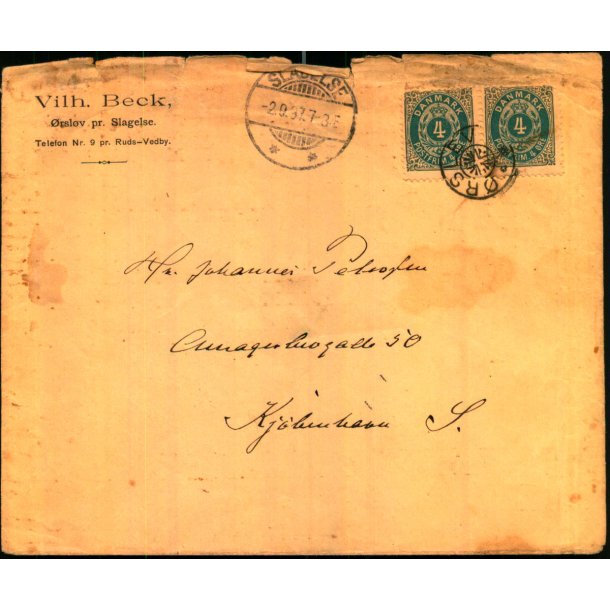 Vilh. Beck,
Ørsløv pr. Slagelse.
Telefon Nr. 9 pr. Ruds-Vedby.
SLAGELSE
-2.9.37.7-3.E
DANMARK
4
POSTFRIM
DANMARK
4
POSTFRIM & ØRE
ØRSL
Hr. Johannes Petersen
Amagerbrogade 50
Kjöbenhavn S.